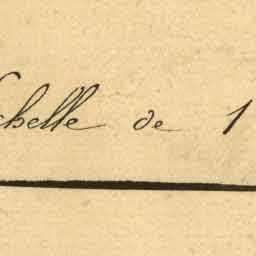 Echelle de 1